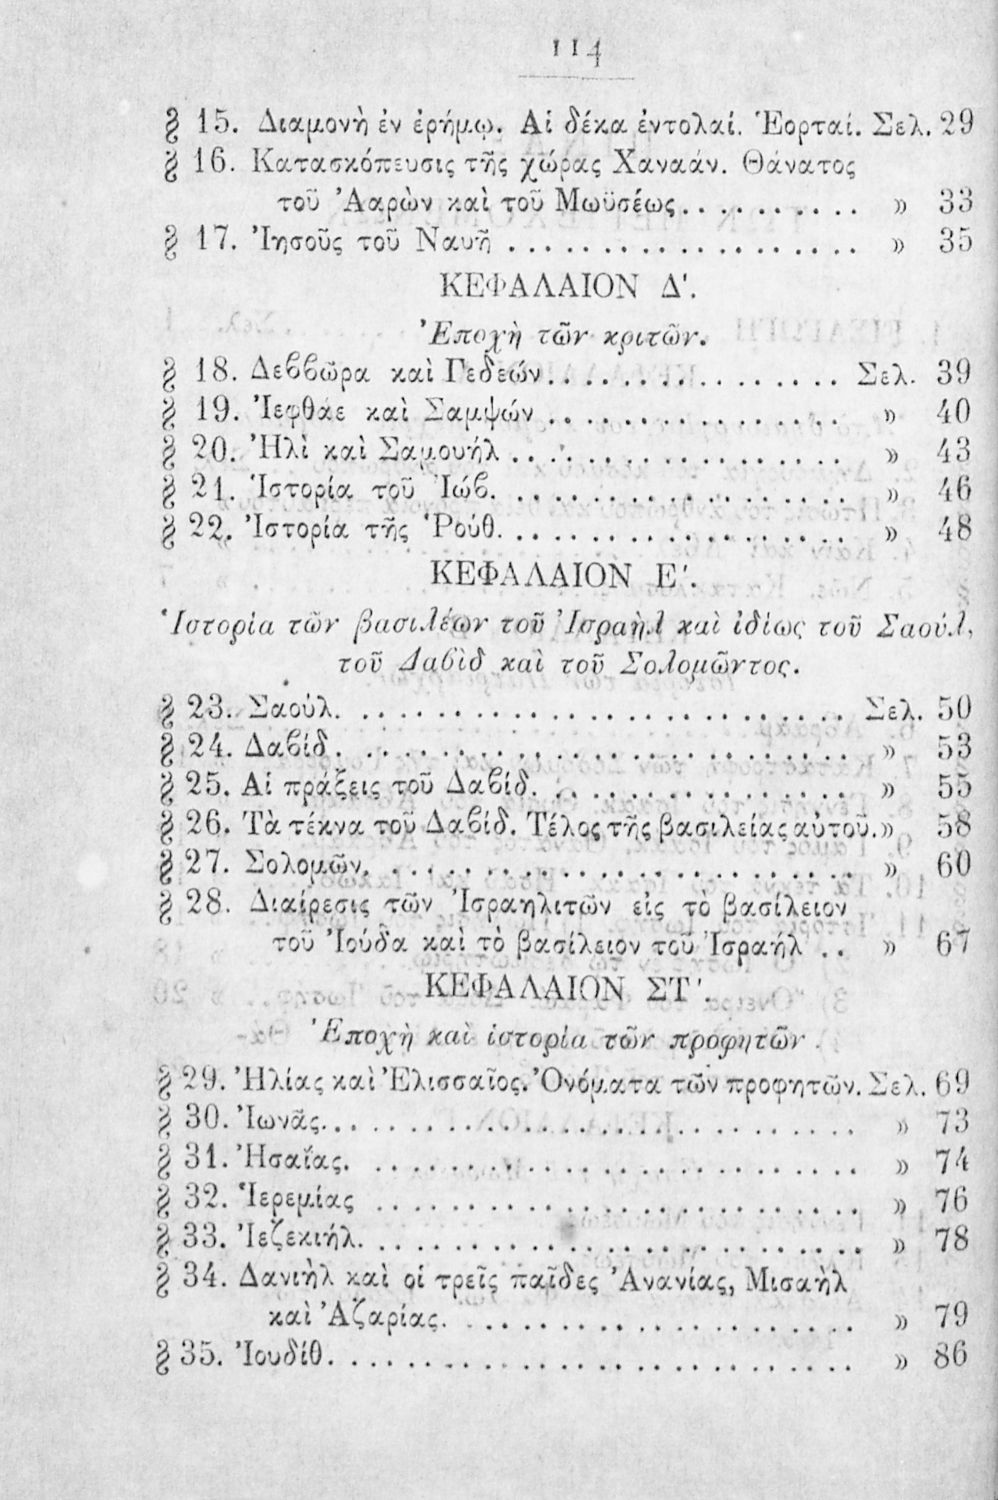 114
§ 15. Διαμονὴ ἐν ἐρήμῳ. Αἱ δέκα ἐντολαί. Ἑορταί. Σελ. 29
§ 16. Κατασκόπευσις τῆς χώρας Χαναάν. Θάνατος
τοῦ Ἀαρὼν καὶ τοῦ Μωϋσέως.......... » 33
§ 17. Ἰησοῦς τοῦ Ναυῆ .................. » 35
ΚΕΦΑΛΑΙΟΝ Δ'.
Ἐποχὴ τῶν κριτῶν.
§ 18. Δεββῶρα καὶ Γεδεών............... Σελ. 39
§ 19. Ἰεφθάε καὶ Σαμψών ............... » 40
§ 20. Ἠλὶ καὶ Σαμουήλ ................. » 43
§ 21. Ἱστορία τοῦ Ἰώβ. ................. » 46
§ 22. Ἱστορία τῆς Ῥούθ. ................. » 48
ΚΕΦΑΛΑΙΟΝ Ε'.
Ἱστορία τῶν βασιλέων τοῦ Ἰσραὴλ καὶ ἰδίως τοῦ Σαούλ,
τοῦ Δαβὶδ καὶ τοῦ Σολομῶντος.
§ 23. Σαούλ. ......................... Σελ. 50
§ 24. Δαβίδ. ......................... » 53
§ 25. Αἱ πράξεις τοῦ Δαβίδ. ............... » 55
§ 26. Τὰ τέκνα τοῦ Δαβίδ. Τέλος τῆς βασιλείας αὐτοῦ.» 58
§ 27. Σολομῶν. ........................ » 60
§ 28. Διαίρεσις τῶν Ἰσραηλιτῶν εἰς τὸ βασίλειον
τοῦ Ἰούδα καὶ τὸ βασίλειον τοῦ Ἰσραήλ .. » 67
ΚΕΦΑΛΑΙΟΝ ΣΤ'.
Ἐποχὴ καὶ ἱστορία τῶν προφητῶν.
§ 29. Ἠλίας καὶ Ἐλισσαῖος. Ὀνόματα τῶν προφητῶν. Σελ. 69
§ 30. Ἰωνᾶς........................... » 73
§ 31. Ἠσαΐας. ......................... » 74
§ 32. Ἱερεμίας ......................... » 76
§ 33. Ἰεζεκιήλ. ......................... » 78
§ 34. Δανιὴλ καὶ οἱ τρεῖς παῖδες Ἀνανίας, Μισαὴλ
καὶ Ἀζαρίας. .................... » 79
§ 35. Ἰουδίθ. .......................... » 86